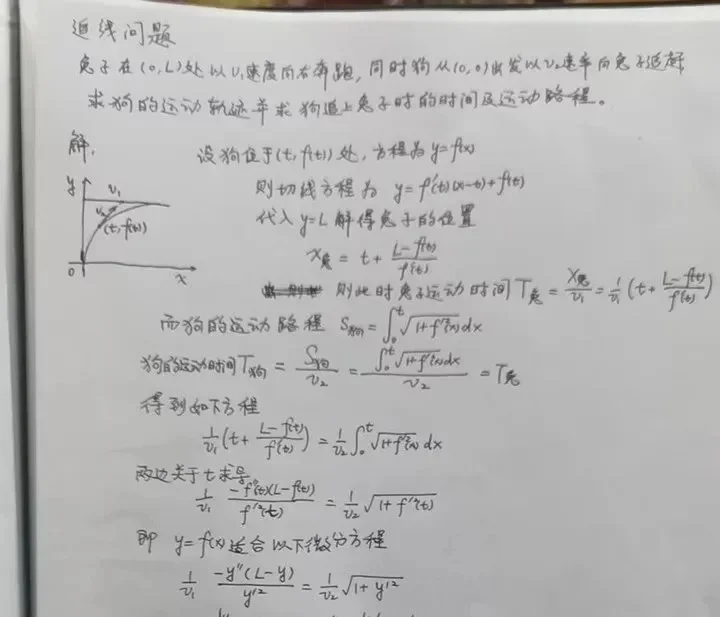 追线问题
兔子在(0,L)处以v₁速度向右奔跑,同时狗从(0,0)出发以v₂速率向兔子追赶
求狗的运动轨迹并求狗追上兔子时的时间及运动路程。
解. 设狗位于(t,f(t))处,方程为y=f(x)
则切线方程为 y=f'(t)(x-t)+f(t)
代入y=L解得兔子的位置
y v₁ v₂ (t,f(t)) 0 x
x兔 = t + (L-f(t))/f'(t)
则此时兔子运动时间T兔 = x兔/v₁ = 1/v₁ (t + (L-f(t))/f'(t))
而狗的运动路程 S狗 = ∫₀ᵗ √(1+f'²(x)) dx
狗的运动时间T狗 = S狗/v₂ = ∫₀ᵗ √(1+f'²(x)) dx / v₂ = T兔
得到如下方程
1/v₁ (t + (L-f(t))/f'(t)) = 1/v₂ ∫₀ᵗ √(1+f'²(x)) dx
两边关于t求导
1/v₁ · -f''(t)(L-f(t))/f'²(t) = 1/v₂ √(1+f'²(t))
即 y=f(x)适合以下微分方程
1/v₁ · -y''(L-y)/y'² = 1/v₂ √(1+y'²)